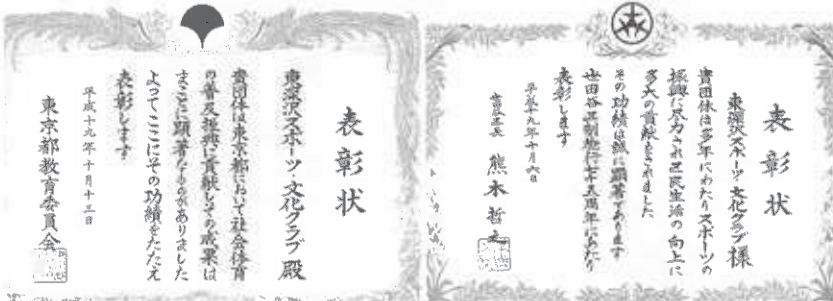 表彰状
東深沢スポーツ・文化クラブ 殿
貴団体は東京都において社会体育
の普及振興に貢献しその成果は
まことに顕著なものがありました
よってここにその功績をたたえ
表彰します
平成十九年十月十三日
東京都教育委員会
表彰状
東深沢スポーツ・文化クラブ 様
貴団体は多年にわたりスポーツの
振興に尽力され区民生活の向上に
多大の貢献をされました
その功績は誠に顕著であります
世田谷区制施行七十五周年にあたり
表彰します
平成十九年十月六日
世田谷区長 熊本哲之